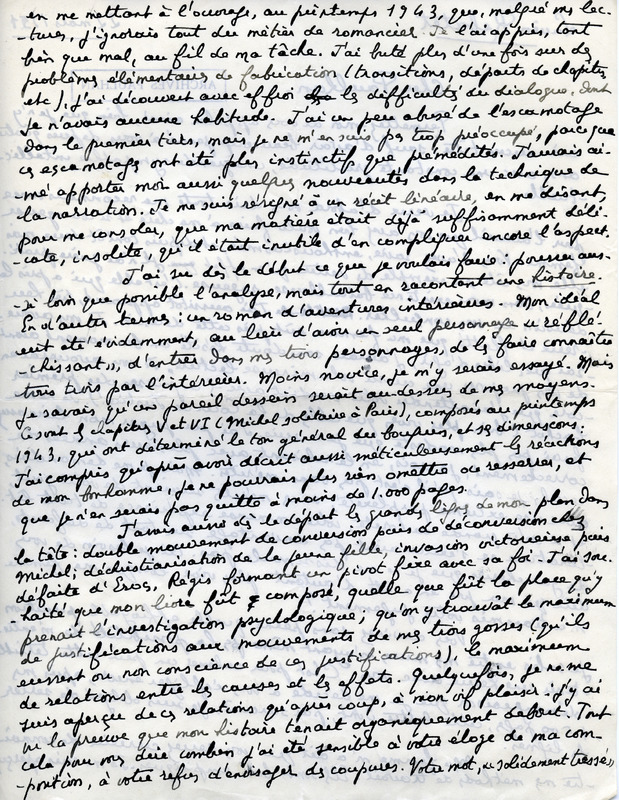 en me mettant à l'ouvrage, au printemps 1943, que, malgré mes lec-
-tures, j'ignorais tout du métier de romancier. Je l'ai appris, tant
bien que mal, au fil de ma tâche. J'ai buté plus d'une fois sur des
problèmes élémentaires de fabrication (transitions, départs de chapitres
etc), j'ai découvert avec effroi les difficultés du dialogue, dont
je n'avais aucune habitude. J'ai un peu abusé de l'escamotage
dans le premier tiers, mais je ne m'en suis pas trop préoccupé, parce que
ces escamotages ont été plus instinctifs que prémédités. J'aurais ai-
-mé apporter moi aussi quelques nouveautés dans la technique de
la narration. Je me suis résigné à un récit linéaire, en me disant,
pour me consoler, que ma matière était déjà suffisamment déli-
-cate, insolite, qu'il était inutile d'en compliquer encore l'aspect.
J'ai su dès le début ce que je voulais faire : pousser aus-
-si loin que possible l'analyse, mais tout en racontant une histoire.
En d'autres termes : un roman d'aventures intérieures. Mon idéal
eût été évidemment, au lieu d'avoir un seul personnage « réflé-
-chissant », d'entrer dans mes trois personnages, de les faire connaître
tous trois par l'intérieur. Moins novice, je m'y serais essayé. Mais
je savais qu'un pareil dessein serait au-dessus de mes moyens.
Ce sont les chapitres V et VI (Michel solitaire à Paris), composés au printemps
1943, qui ont déterminé le ton général du bouquin, et ses dimensions :
J'ai compris qu'après avoir décrit aussi méticuleusement les réactions
de mon bonhomme, je ne pourrais plus rien omettre ou resserrer, et
que je n'en serais pas quitte à moins de 1.000 pages.
J'avais aussi dès le départ les grandes lignes de mon plan dans
la tête : double mouvement de conversion puis de déconversion chez
Michel, déchristianisation de la jeune fille, invasion victorieuse puis
défaite d'Eros, Régis formant un pivot fixe avec sa foi. J'ai sou-
-haité que mon livre fût composé, quelle que fût la place qu'y
prenait l'investigation psychologique, qu'on y trouvât le maximum
de justifications aux mouvements de mes trois gosses (qu'ils
eussent ou non conscience de ces justifications), le maximum
de relations entre les causes et les effets. Quelquefois, je ne me
suis aperçu de ces relations qu'après coup, à mon vif plaisir : j'y ai
vu la preuve que mon histoire tenait organiquement debout. Tout
cela pour vous dire combien j'ai été sensible à votre éloge de ma com-
-position, à votre refus d'envisager des coupures. Votre mot, « solidement tressé »